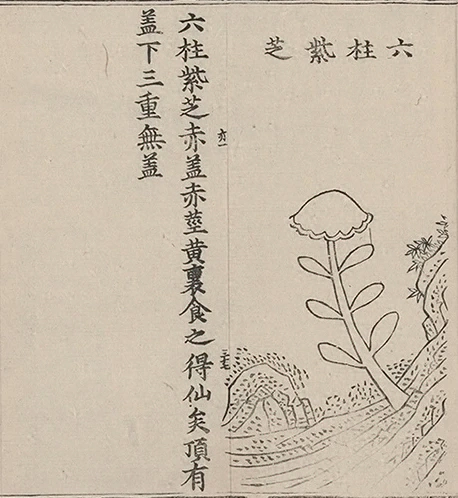 六柱紫芝
六柱紫芝赤盖赤莖黃裏食之得仙矣頂有
盖下三重無盖